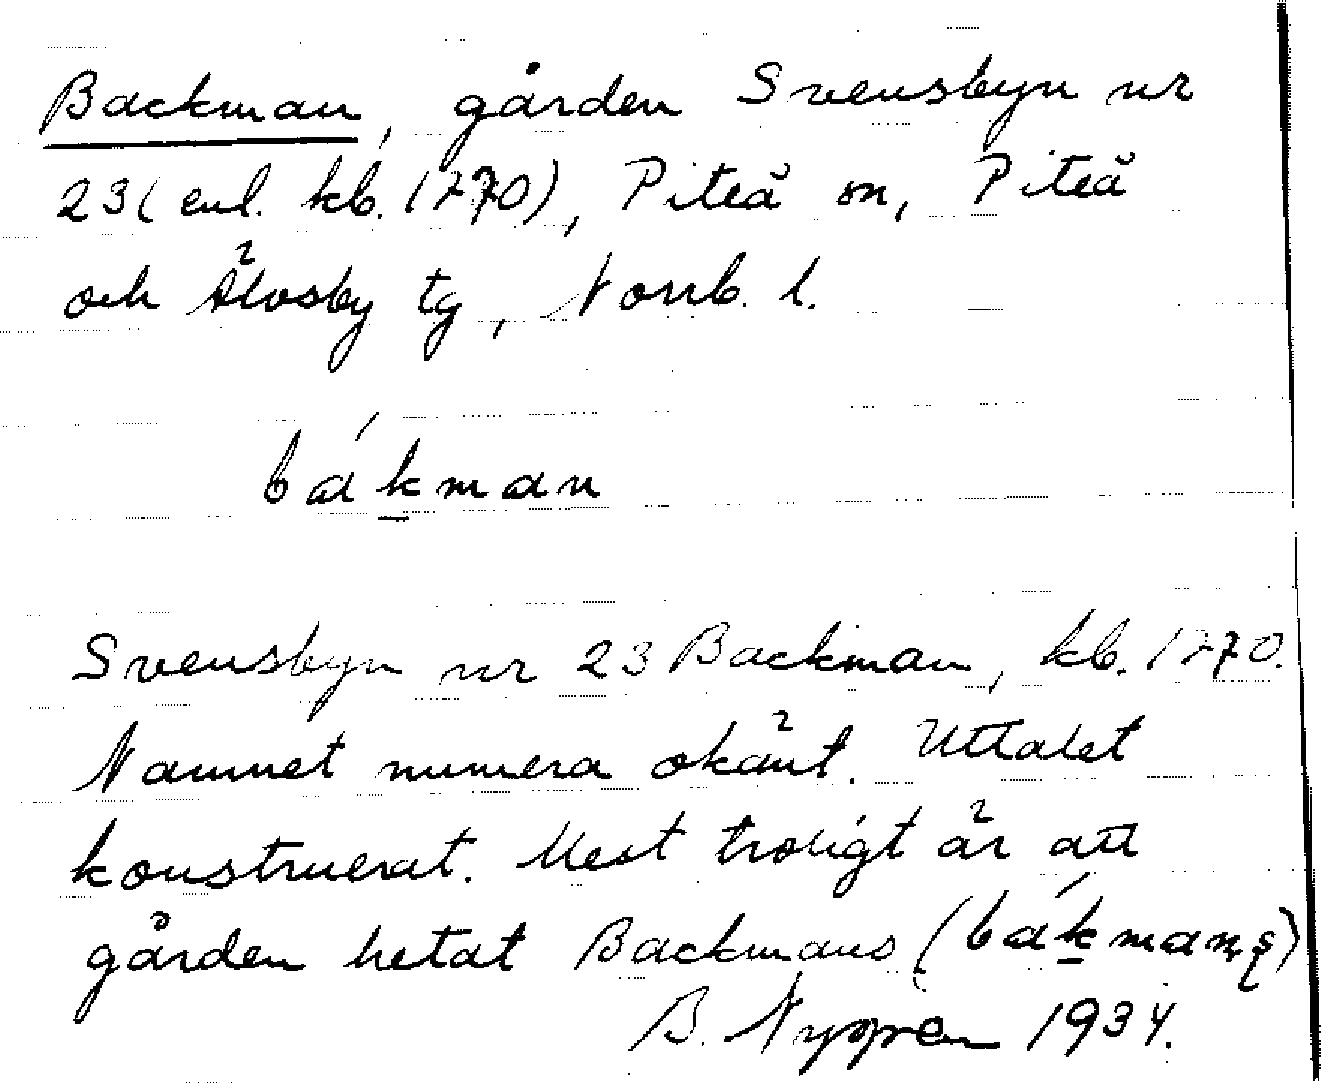 Backman, gården Svensbyn nr
23 (enl. kb. 1770), Piteå sn, Piteå
och Älvsby tg, Norrb. l.
bák̲man
Svensbyn nr 23 Backman, kb. 1770.
Namnet numera okänt. Uttalet
konstruerat. Mest troligt är att
gården hetat Backmans (bák̲maṇṣ)
B. Nygren 1934.